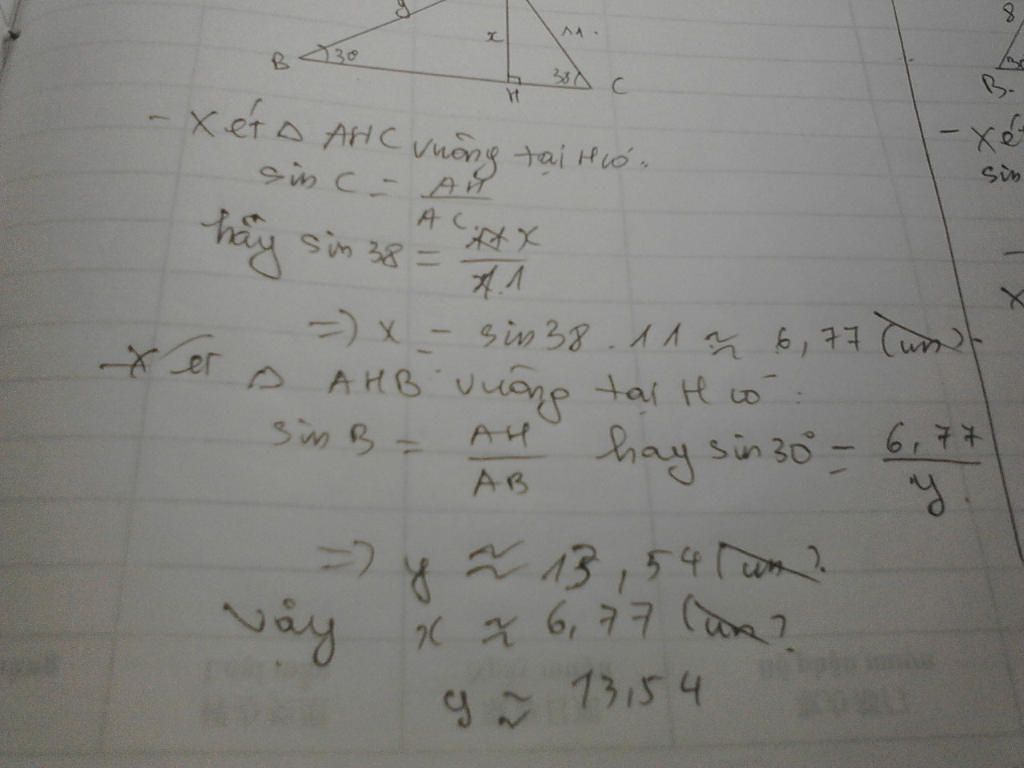 y
x
11.
8
B
30
38
H
C
30
B.
- Xét △ AHC vuông tại H có.
sin C = AH / AC.
hãy sin 38 = x / 11
=> x = sin 38 . 11 ≈ 6,77
- Xét △ AHB vuông tại H có :
sin B = AH / AB hay sin 30° = 6,77 / y.
=> y ≈ 13,54
Vậy x ≈ 6,77
y ≈ 13,54
- Xét
sin
-
x